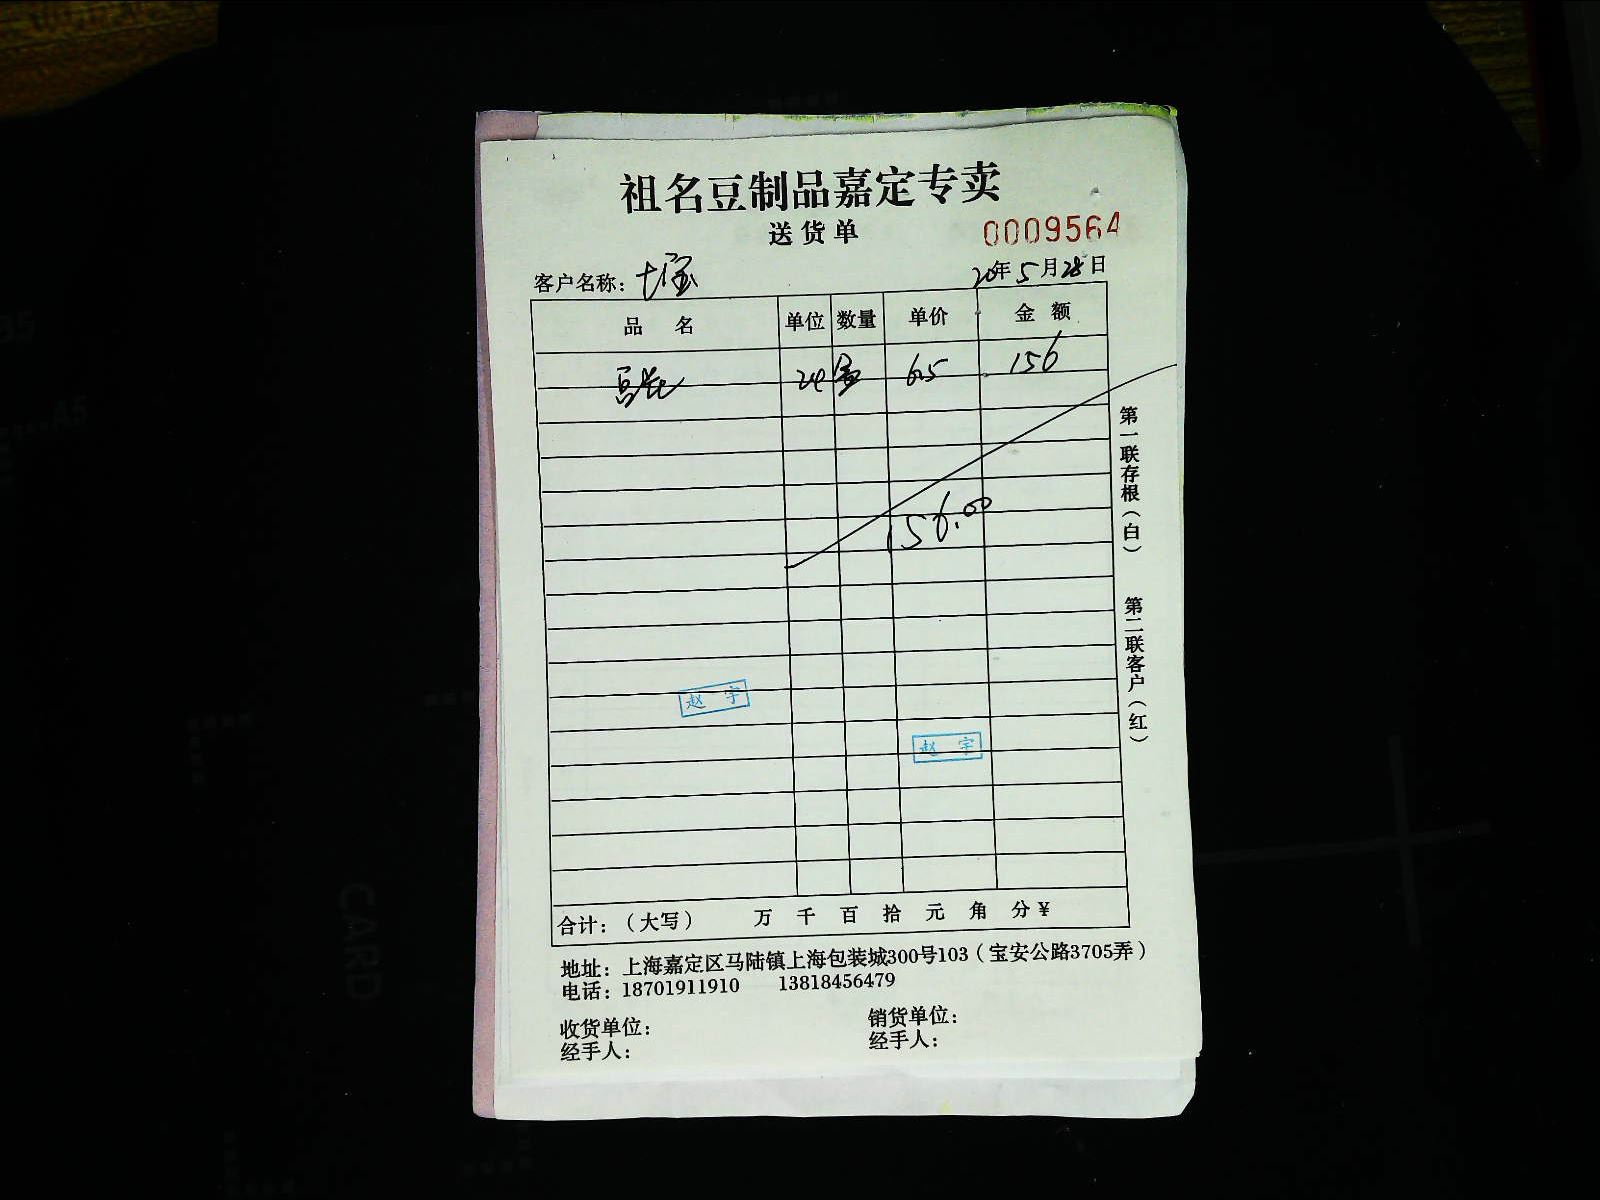 祖名豆制品嘉定专卖
送货单
0009564
客户名称：七宝
20年5月28日
品 名 单位 数量 单价 金 额
豆花 24 盒 6.5 156
156.00
赵 宇
赵 宇
合计：（大写） 万 千 百 拾 元 角 分￥
地址：上海嘉定区马陆镇上海包装城300号103（宝安公路3705弄）
电话：18701911910 13818456479
收货单位： 销货单位：
经手人： 经手人：
第一联存根（白） 第二联客户（红）
CARD
A5